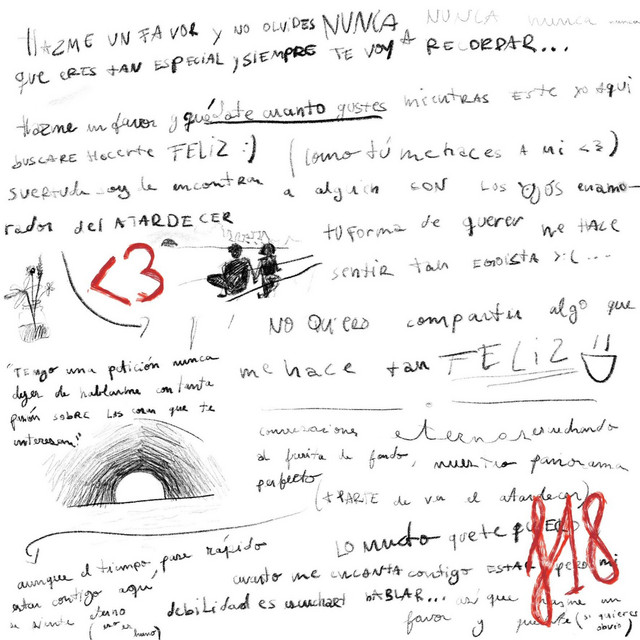 HAZME UN FAVOR Y NO OLVIDES NUNCA, NUNCA nunca nunca
que ERES TAN ESPECIAL y SIEMPRE TE VOY A RECORDAR...
Hazme un favor y quédate cuanto gustes mientras este yo aqui
BUSCARE Hacerte FELIZ :) (como tú me haces A mi <3)
suertuda soy de encontrar a alguien CON LOS OJOS enamo-
rados del ATARDECER
tu forma de querer me HACE
sentir tan EGOISTA >:( ...
<3
NO QUIERO compartir algo que
me hace tan FELiZ
"TENgo una petición nunca
dejes de hablarme con tanta
pasión SOBRE LAS cosas que te
interesan!"
conversaciones eternas escuchando
al de fondo, nuestro panorama
perfecto
(APARTE de ver el atardecer)
LO mucho que te quiero
aunque el tiempo pase rápido
estar contigo aquí,
se siente eterno
cuanto me ENCANTA contigo ESTAR pero mi
debilidad es escucharte HABLAR... así que hazme un
favor y quédate (si quieres
obvio)
818